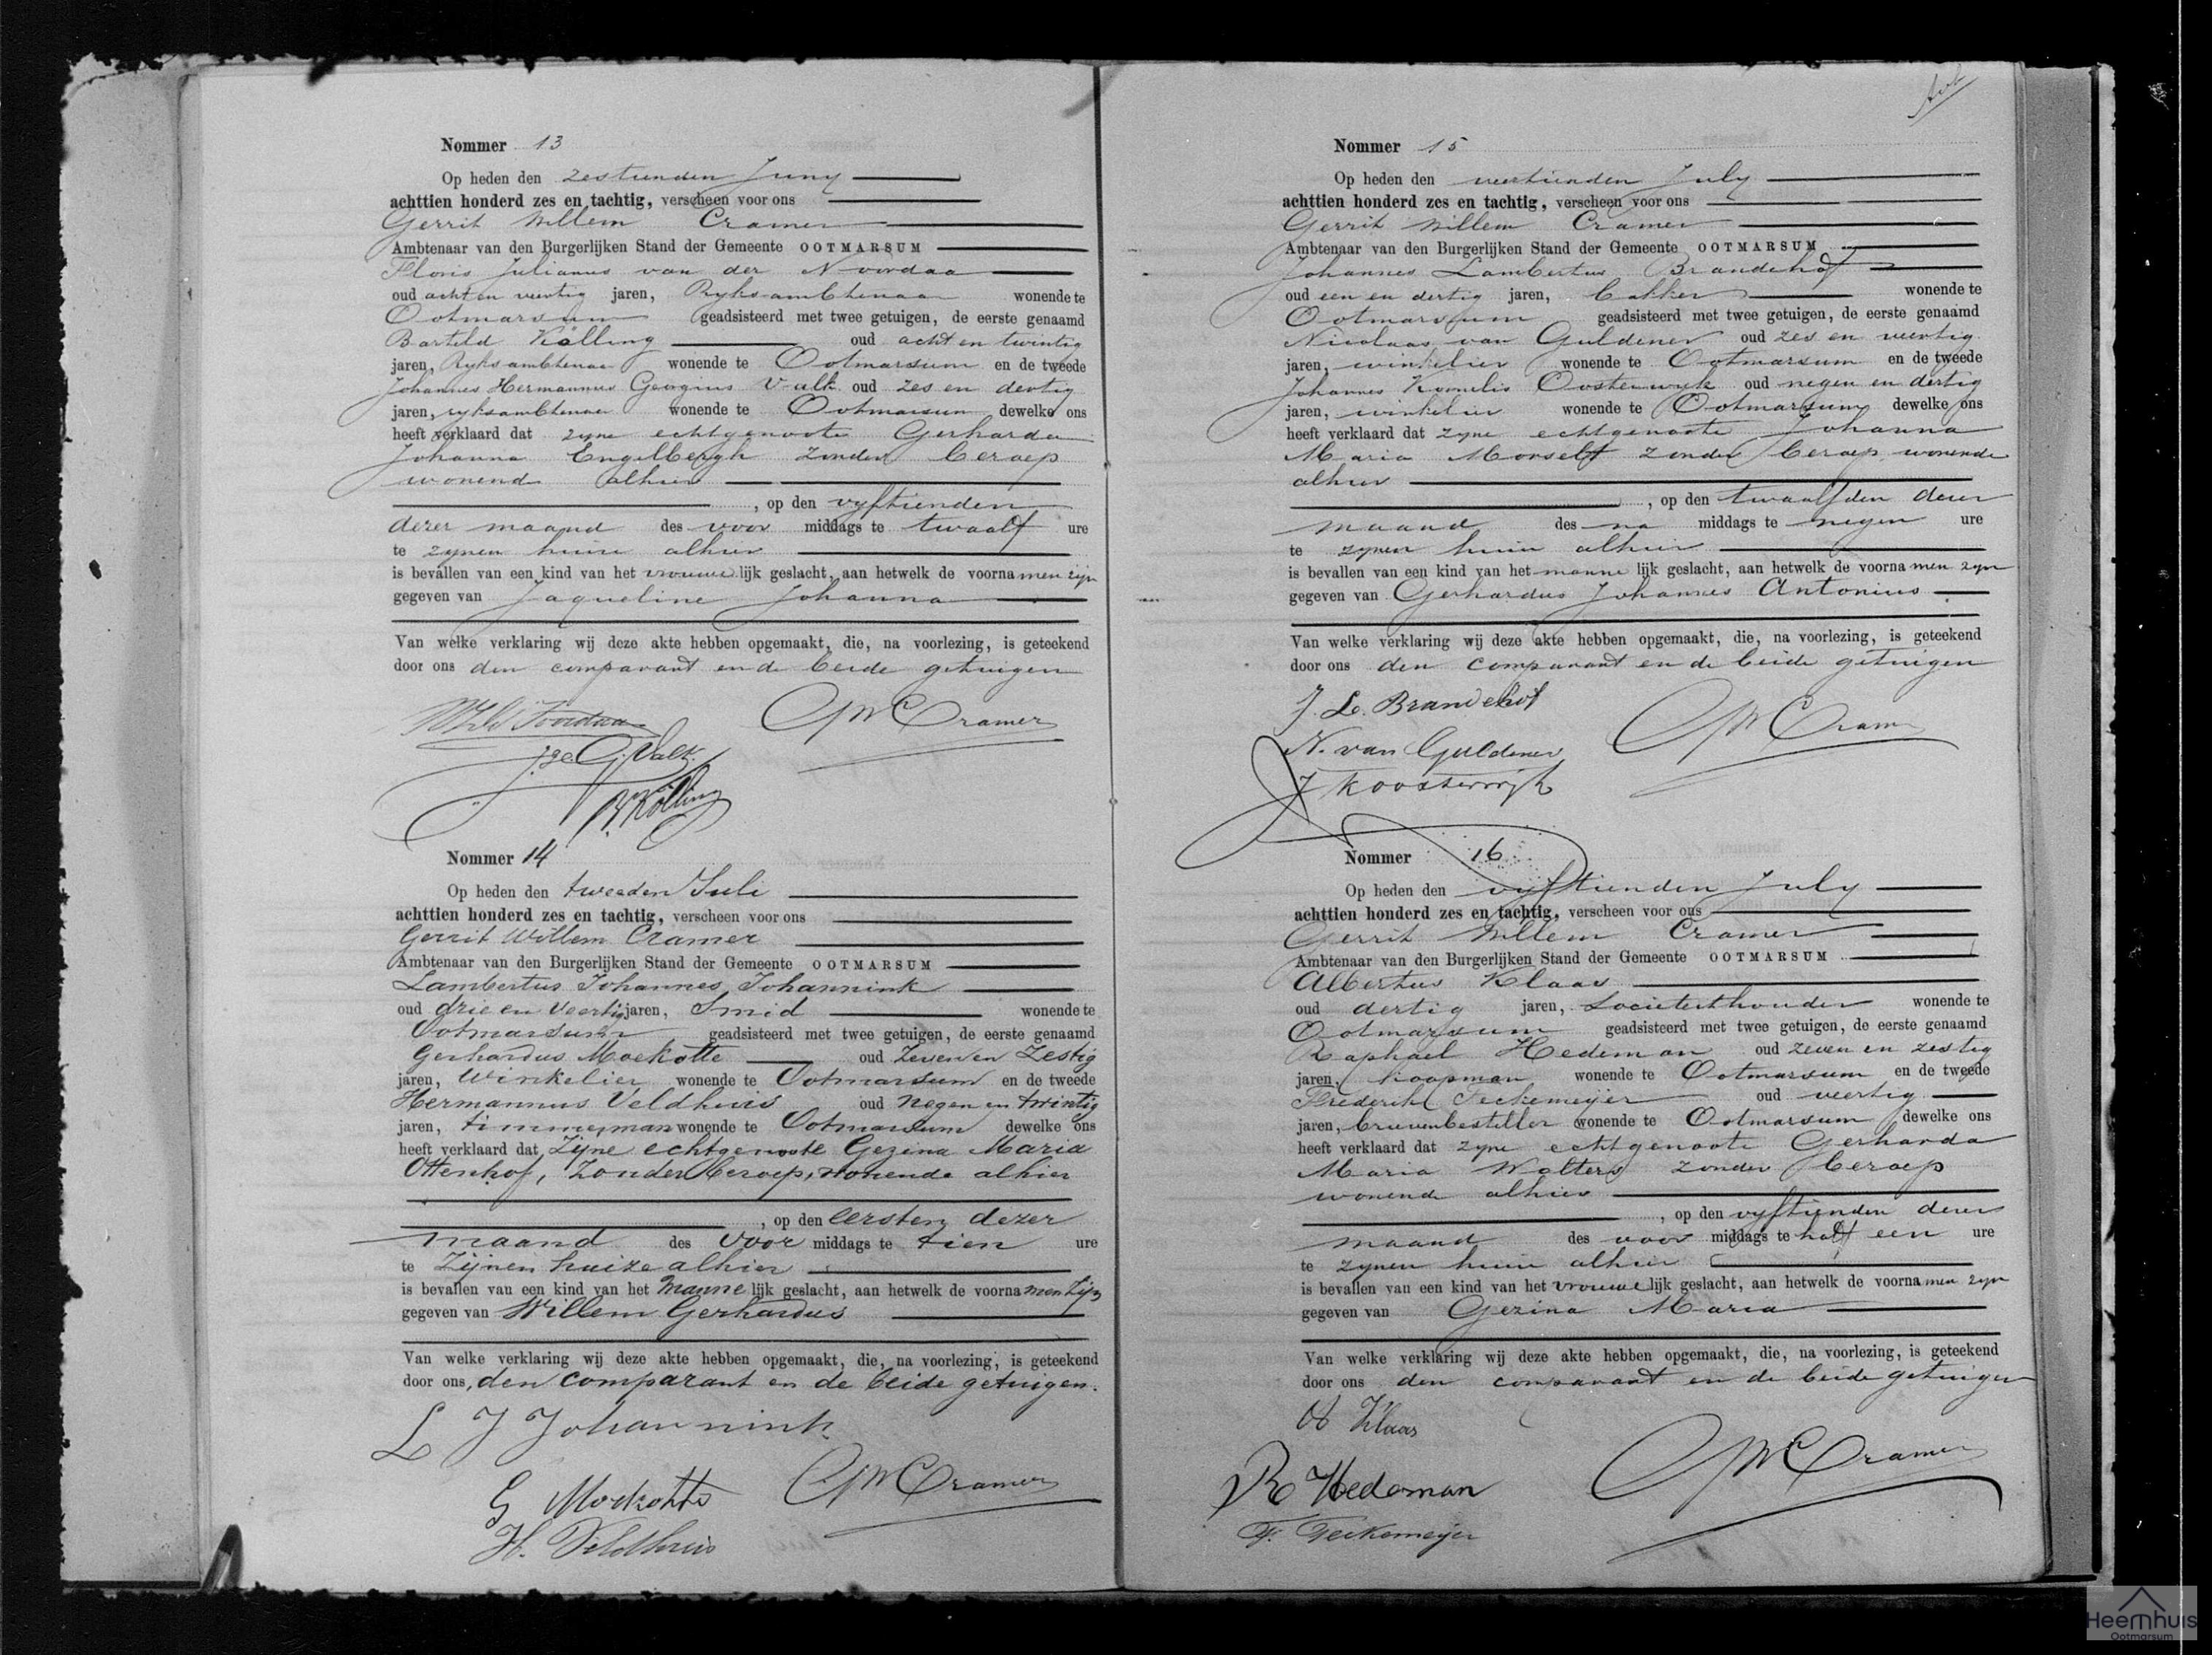 Nommer 13
Op heden den zestienden Juny
achttien honderd zes en tachtig, verscheen voor ons
Gerrit Willem Cramer
Ambtenaar van den Burgerlijken Stand der Gemeente OOTMARSUM
Floris Julianus van der Noordaa
oud acht en veertig jaren, Ryksambtenaar wonende te
Ootmarsum geadsisteerd met twee getuigen, de eerste genaamd
Barteld Kölling oud acht en twintig
jaren, Ryksambtenaar wonende te Ootmarsum en de tweede
Johannes Hermannus Georgius Valk oud zes en dertig
jaren, ryksambtenaar wonende te Ootmarsum dewelke ons
heeft verklaard dat zyne echtgenoote Gerharda
Johanna Engelbergh zonder beroep
wonend alhier
, op den vyftienden
dezer maand des voor middags te twaalf ure
te zynen huize alhier
is bevallen van een kind van het vrouwelijk geslacht, aan hetwelk de voornamen zijn
gegeven van Jaqueline Johanna
Van welke verklaring wij deze akte hebben opgemaakt, die, na voorlezing, is geteekend
door ons den comparant en de beide getuigen
GW Cramer
J.H.G. Valk
B. Kölling
Nommer 14
Op heden den tweeden Juli
achttien honderd zes en tachtig, verscheen voor ons
Gerrit Willem Cramer
Ambtenaar van den Burgerlijken Stand der Gemeente OOTMARSUM
Lambertus Johannes Johannink
oud drie en veertig jaren, Smid wonende te
Ootmarsum geadsisteerd met twee getuigen, de eerste genaamd
Gerhardus Moekotte oud Zeven en Zestig
jaren, Winkelier wonende te Ootmarsum en de tweede
Hermannus Veldhuis oud negen en twintig
jaren, timmerman wonende te Ootmarsum dewelke ons
heeft verklaard dat Zijne echtgenoote Gezina Maria
Ottenhof, Zonder beroep, wonende alhier
, op den eersten dezer
maand des voor middags te tien ure
te Zijnen huize alhier
is bevallen van een kind van het mannelijk geslacht, aan hetwelk de voornamen Zijn
gegeven van Willem Gerhardus
Van welke verklaring wij deze akte hebben opgemaakt, die, na voorlezing, is geteekend
door ons, den comparant en de beide getuigen.
L J Johannink
G Moekotte GW Cramer
H. Veldhuis
Nommer 15
Op heden den veertienden July
achttien honderd zes en tachtig, verscheen voor ons
Gerrit Willem Cramer
Ambtenaar van den Burgerlijken Stand der Gemeente OOTMARSUM
Johannes Lambertus Brandehof
oud een en dertig jaren, bakker wonende te
Ootmarsum geadsisteerd met twee getuigen, de eerste genaamd
Nicolaas van Guldener oud zes en veertig
jaren, winkelier wonende te Ootmarsum en de tweede
Johannes Kornelis Oosterwyk oud negen en dertig
jaren, winkelier wonende te Ootmarsum dewelke ons
heeft verklaard dat zyne echtgenoote Johanna
Maria Morselt zonder beroep wonende
alhier
, op den twaalfden dezer
maand des na middags te negen ure
te zynen huize alhier
is bevallen van een kind van het mannelijk geslacht, aan hetwelk de voornamen zyn
gegeven van Gerhardus Johannes Antonius
Van welke verklaring wij deze akte hebben opgemaakt, die, na voorlezing, is geteekend
door ons den comparant en de beide getuigen
J. L. Brandehof
N. van Guldener GW Cramer
J K Oosterwijk
Nommer 16
Op heden den vyftienden July
achttien honderd zes en tachtig, verscheen voor ons
Gerrit Willem Cramer
Ambtenaar van den Burgerlijken Stand der Gemeente OOTMARSUM
Albertus Klaas
oud dertig jaren, Societeithouder wonende te
Ootmarsum geadsisteerd met twee getuigen, de eerste genaamd
Raphael Hedeman oud zeven en zestig
jaren, koopman wonende te Ootmarsum en de tweede
Frederik Teckemeijer oud veertig
jaren, brievenbesteller wonende te Ootmarsum dewelke ons
heeft verklaard dat zyne echtgenoote Gerharda
Maria Wolters zonder beroep
wonend alhier
, op den vyftienden dezer
maand des voor middags te half een ure
te zynen huize alhier
is bevallen van een kind van het vrouwelijk geslacht, aan hetwelk de voornamen zyn
gegeven van Gezina Maria
Van welke verklaring wij deze akte hebben opgemaakt, die, na voorlezing, is geteekend
door ons den comparant en de beide getuigen
A Klaas
GW Cramer
R Hedeman
F. Teckemeijer
Heemhuis
Ootmarsum